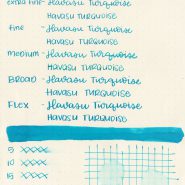 extra fine - Havasu Turquoise
HAVASU TURQUOISE
fine - Havasu Turquoise
HAVASU TURQUOISE
MEDIUM - Havasu Turquoise
HAVASU TURQUOISE
BROAD - Havasu Turquoise
HAVASU TURQUOISE
FLEX - Havasu Turquoise
HAVASU TURQUOISE
5 XXXX
10 XXXX
15 XXXX